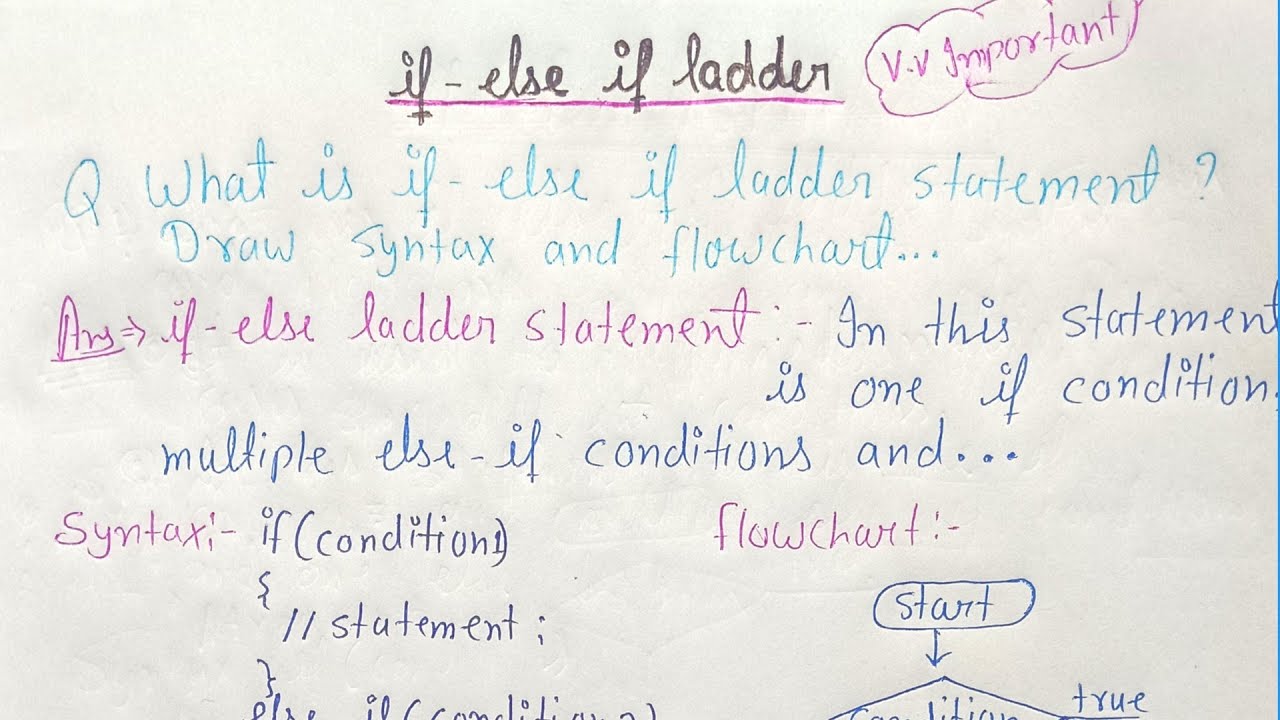 if-else if ladder
V.V Important
Q What is if-else if ladder statement ?
Draw syntax and flowchart...
Ans⇒ if-else ladder statement :- In this statement
is one if condition.
multiple else-if conditions and...
Syntax:- if(condition1)
{
// statement ;
}
else if(condition2)
flowchart :-
start
Condition
true